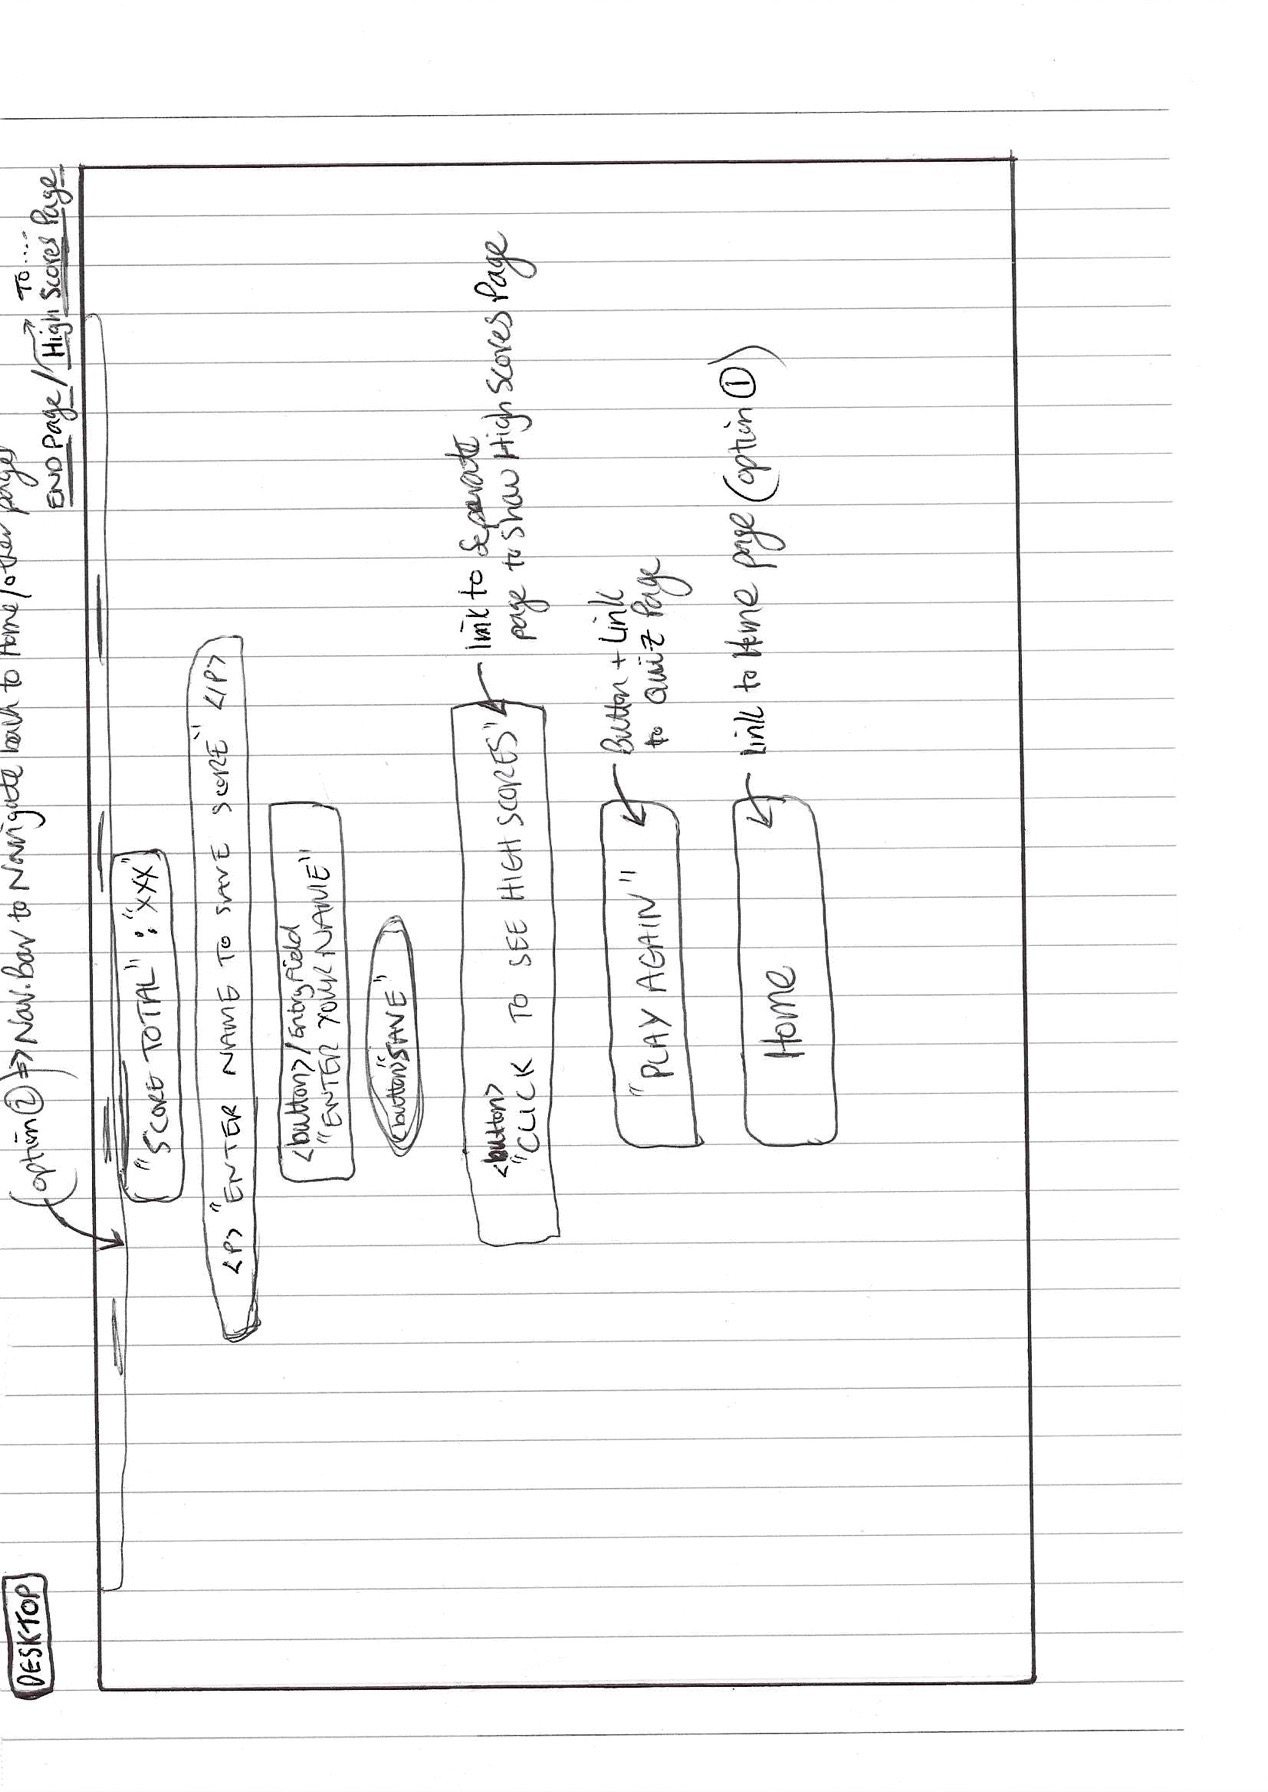 DESKTOP
(option ②) => Nav.Bar to Navigate back to Home/other pages
TO....
END Page / High Scores Page
"SCORE TOTAL" : "XXX"
<P> "ENTER NAME TO SAVE SCORE" </P>
<button>/Entry Field
"ENTER YOUR NAME"
<button> "SAVE"
<button>
"CLICK TO SEE HIGH SCORES"
link to Separate
page to show High Scores Page
"PLAY AGAIN"
Button + Link
to Quiz Page
Home
Link to Home page (option ①)